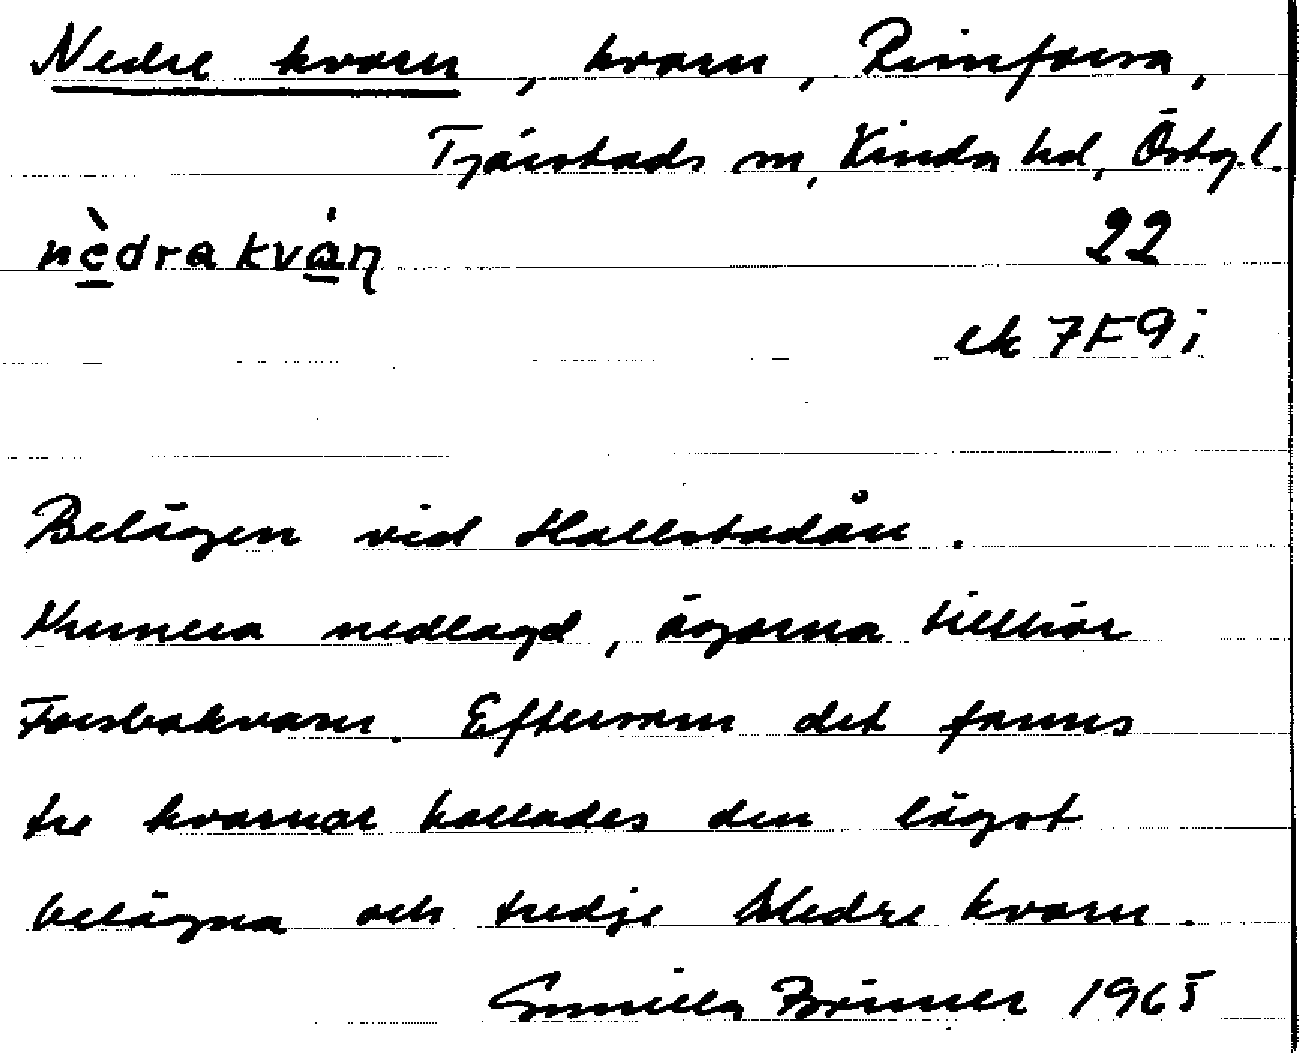 Nedre kvarn, kvarn, Rimforsa,
Tjärstads sn, Kinda hd, Östgl.
nèdra kván 22
ek 7F9i
Belägen vid Hallstadån.
Numera nedlagd, ägorna tillhör
Forsbokvarn. Eftersom det fanns
tre kvarnar kallades den lägst
belägna och tredje Nedre kvarn.
Gunilla 1965